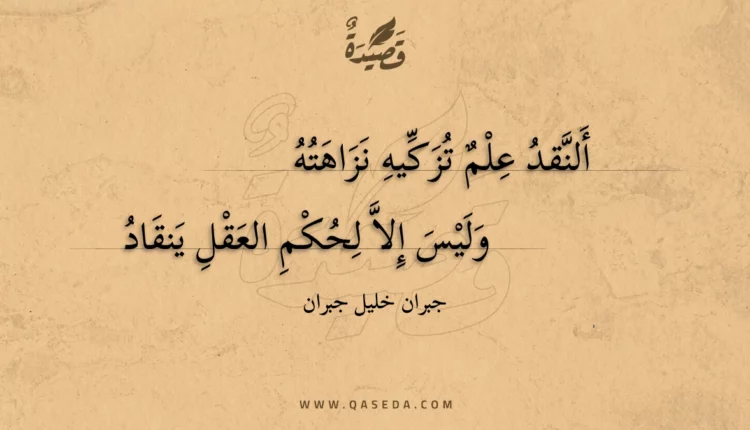 قَصِيدَةٌ
أَلنَّقدُ عِلْمٌ تُزَكِّيهِ نَزَاهَتُهُ
وَلَيْسَ إِلاَّ لِحُكْمِ العَقْلِ يَنقَادُ
جبران خليل جبران
WWW.QASEDA.COM